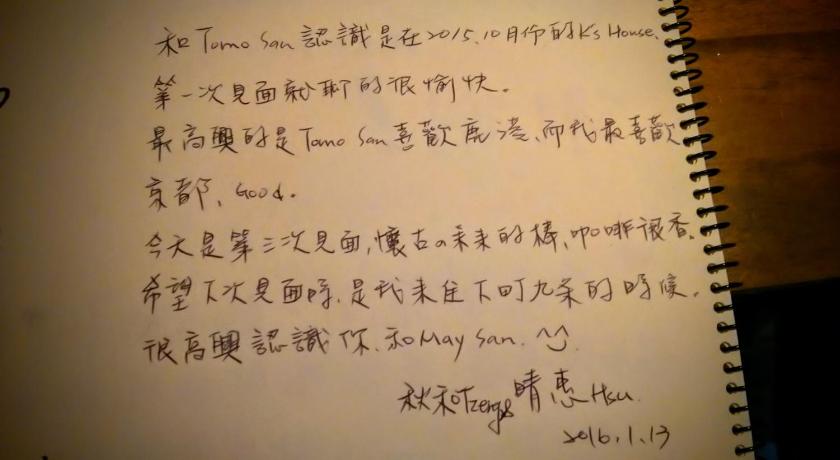 和 Tomo San 認識是在2015.10月份的K's House、
第一次見面就聊的很愉快。
最高興的是Tomo San 喜歡鹿港、而我最喜歡
京都、Good.
今天是第三次見面,懷古の未来的棒、咖啡很香。
希望下次見面時、是我來住下町九条的時候。
很高興認識你、和May San.
秋和Tzeng & 晴惠 Hsu.
2016.1.13